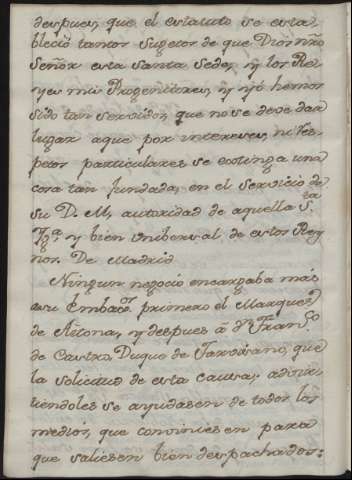 despues, que el estatuto se esta-
bleciò tantos sugetos de que Dios nrõ
Señor esta santa sede, y los Re-
yes mis Progenitores, y yò hemos
sido tan servidos, que no se deve dar
lugar aque por intereses, ni res-
petos particulares se extinga una
cosa tan fundada en el servicio de
su D. M, autoridad de aquella S.ta
Ygª y bien universal de estos Rey
nos. De Madrid
Ningun negocio encargaba mas
asu Embacor primero el Marques
de Aëtona, y despues á Dn Franco
de Castro Duque de Taurisano, que
la solicitud de esta causa; advir-
tiendoles se ayudasen de todos los
medios, que conviniesen para
que saliesen bien despachados: